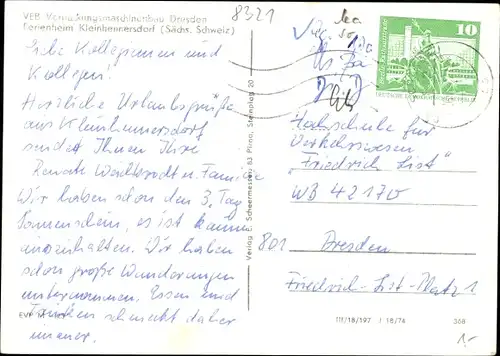 8321
VEB Verpackungsmaschinenbau Dresden
Ferienheim Kleinhennersdorf (Sächs. Schweiz)
Liebe Kolleginnen und
Kollegen!
Herzliche Urlaubsgrüße
aus Kleinhennersdorf
sendet Ihnen Ihre
Renate u. Familie
Wir haben schon den 3. Tag
Sonnenschein, es ist kaum
auszuhalten. Wir haben
schon große Wanderungen
unternommen. Essen und
Trinken schmeckt daher
immer.
Verlag E. Scheermesser, 83 Pirna, Steinplatz 20
10
Hochschule für
Verkehrswesen
"Friedrich List"
WB 42170
801 Dresden
Friedrich-List-Platz 1
III/18/197 I 18/74 368
1,-